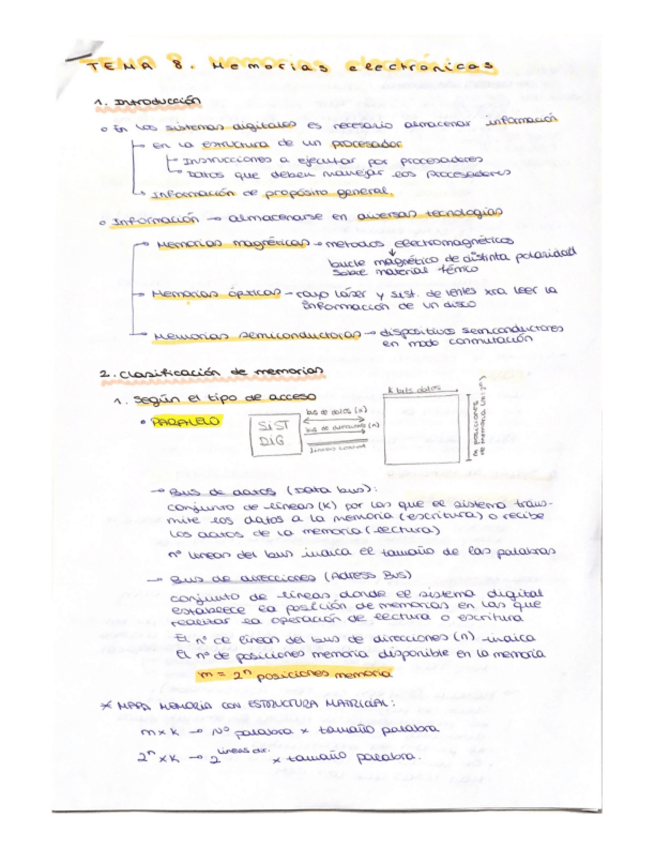 TEMA 8. Memorias electrónicas
1. Introducción
o En los sistemas digitales es necesario almacenar información
en la estructura de un procesador
Instrucciones a ejecutar por procesadores
Datos que deben manejar los procesadores
Información de propósito general.
o Información → almacenarse en diversas tecnologías
Memorias magnéticas → métodos electromagnéticos
bucle magnético de distinta polaridad
sobre material férrico
Memorias ópticas → rayo láser y sist. de lentes xra leer la
información de un disco
Memorias semiconductoras → dispositivos semiconductores
en modo conmutación
2. Clasificación de memorias
1. Según el tipo de acceso
• PARALELO
SIST
DIG
bus de datos (k)
bus de direcciones (n)
k bits datos
m posiciones
de memoria (m=2^n)
→ Bus de datos (Data bus):
conjunto de líneas (k) por las que el sistema trans-
mite los datos a la memoria (escritura) o recibe
los datos de la memoria (lectura)
nº líneas del bus indica el tamaño de las palabras
→ Bus de direcciones (Adress Bus)
conjunto de líneas donde el sistema digital
establece la posición de memorias en las que
realizar la operación de lectura o escritura
El nº de líneas del bus de direcciones (n) indica
el nº de posiciones memoria disponible en la memoria
m = 2^n posiciones memoria
* MAPA MEMORIA CON ESTRUCTURA MATRICIAL:
m x k → Nº palabra x tamaño palabra
2^n x k → 2^líneas dir. x tamaño palabra.